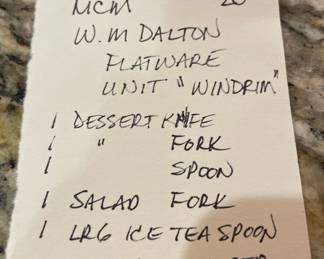 MCM 20
W.M DALTON
FLATWARE
UNIT "WINDRIM"
1 DESSERT KNIFE
1 " FORK
1 SPOON
1 SALAD FORK
1 LRG ICE TEA SPOON